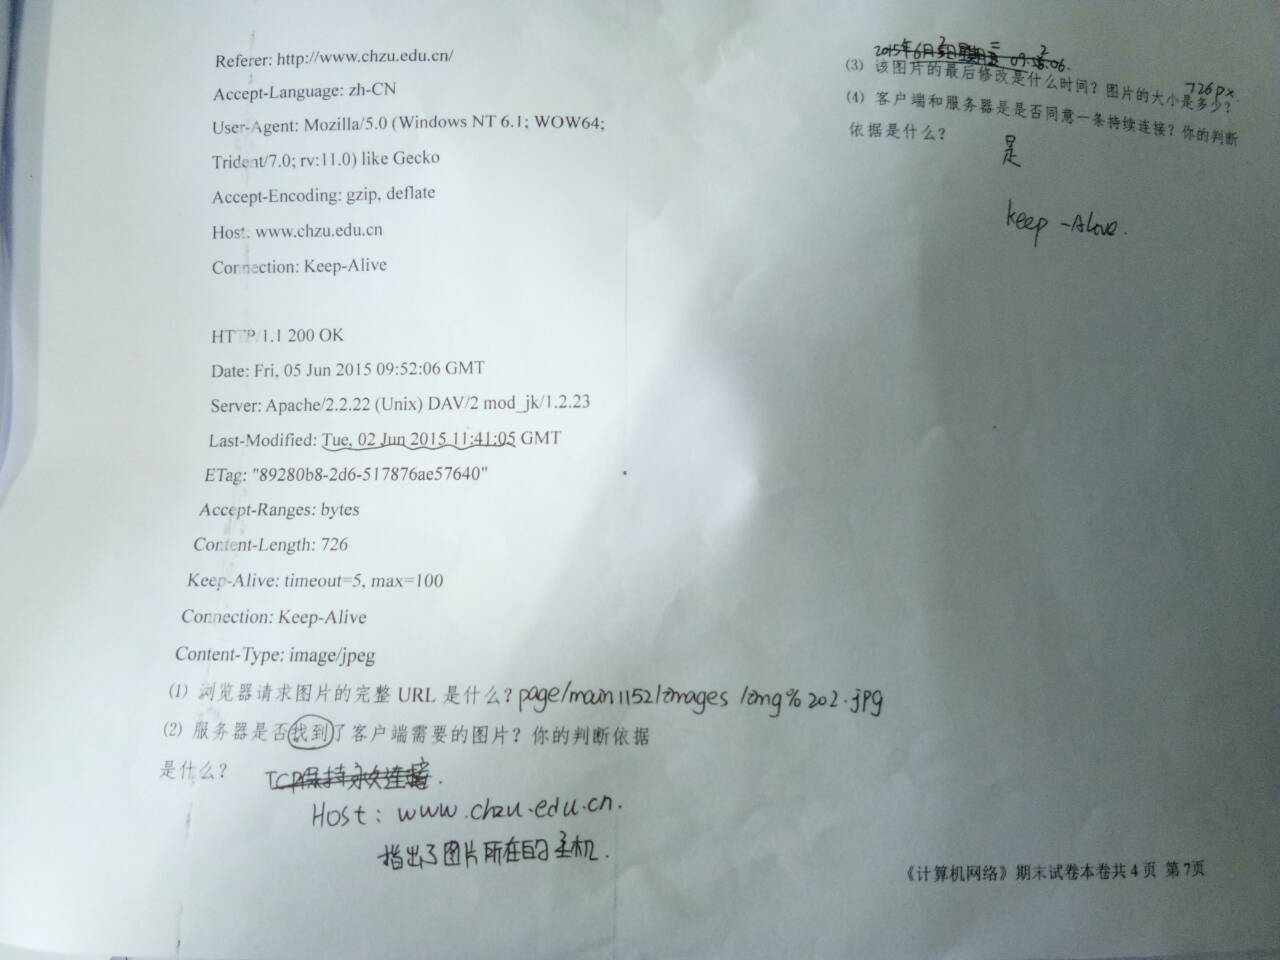 Referer: http://www.chzu.edu.cn/
Accept-Language: zh-CN
User-Agent: Mozilla/5.0 (Windows NT 6.1; WOW64;
Trident/7.0; rv:11.0) like Gecko
Accept-Encoding: gzip, deflate
Host: www.chzu.edu.cn
Connection: Keep-Alive
HTTP/1.1 200 OK
Date: Fri, 05 Jun 2015 09:52:06 GMT
Server: Apache/2.2.22 (Unix) DAV/2 mod_jk/1.2.23
Last-Modified: Tue, 02 Jun 2015 11:41:05 GMT
ETag: "89280b8-2d6-517876ae57640"
Accept-Ranges: bytes
Content-Length: 726
Keep-Alive: timeout=5, max=100
Connection: Keep-Alive
Content-Type: image/jpeg
(1) 浏览器请求图片的完整 URL 是什么? page/main1152/images/img%202.jpg
(2) 服务器是否找到了客户端需要的图片? 你的判断依据
是什么? TCP保持永久连接.
Host: www.chzu.edu.cn.
指出了图片所在的主机.
2015年6月
726px.
(3) 该图片的最后修改是什么时间? 图片的大小是多少?
(4) 客户端和服务器是是否同意一条持续连接? 你的判断
依据是什么?
是
keep-Alive.
《计算机网络》期末试卷本卷共 4 页 第 7页